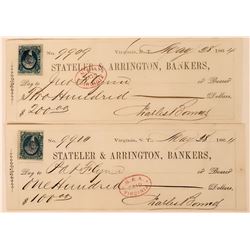 No. 9909 Virginia, N. T., May 28 1864
STATELER & ARRINGTON, BANKERS,
Pay to or Bearer
Two Hundred Dollars,
$200.00 Charles Bonner
No. 9910 Virginia, N. T., May 28 1864
STATELER & ARRINGTON, BANKERS,
Pay to Pat Flynn or Bearer
One Hundred Dollars,
$100.00 Charles Bonner